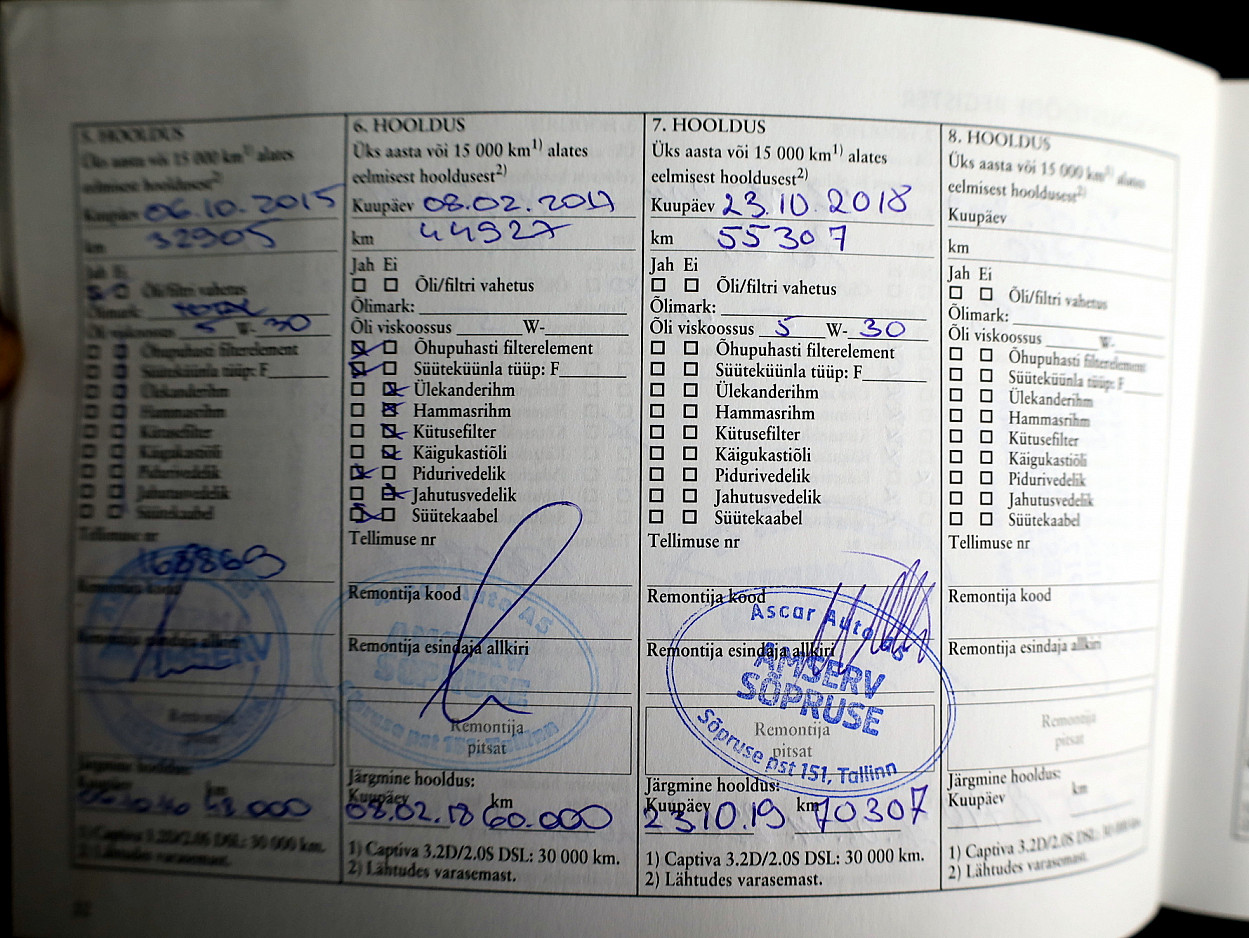 5. HOOLDUS
Üks aasta või 15 000 km1) alates
eelmisest hooldusest2)
Kuupäev 06.10.2015
km 32905
Jah Ei
Õli/filtri vahetus
Õlimark: TOTAL
Õli viskoossus 5 W- 30
Õhupuhasti filterelement
Süüteküünla tüüp: F
Ülekanderihm
Hammasrihm
Kütusefilter
Käigukastiõli
Pidurivedelik
Jahutusvedelik
Süütekaabel
Tellimuse nr
168869
Remontija kood
Remontija esindaja allkiri
Remontija
pitsat
Järgmine hooldus:
Kuupäev km
06.10.16 48.000
1) Captiva 3.2D/2.0S DSL: 30 000 km.
2) Lähtudes varasemast.
22
6. HOOLDUS
Üks aasta või 15 000 km1) alates
eelmisest hooldusest2)
Kuupäev 08.02.2017
km 44927
Jah Ei
Õli/filtri vahetus
Õlimark:
Õli viskoossus W-
Õhupuhasti filterelement
Süüteküünla tüüp: F
Ülekanderihm
Hammasrihm
Kütusefilter
Käigukastiõli
Pidurivedelik
Jahutusvedelik
Süütekaabel
Tellimuse nr
Remontija kood
AMSERV
SÕPRUSE
Sõpruse pst 151, Tallinn
Remontija esindaja allkiri
Remontija
pitsat
Järgmine hooldus:
Kuupäev km
08.02.18 60.000
1) Captiva 3.2D/2.0S DSL: 30 000 km.
2) Lähtudes varasemast.
7. HOOLDUS
Üks aasta või 15 000 km1) alates
eelmisest hooldusest2)
Kuupäev 23.10.2018
km 55307
Jah Ei
Õli/filtri vahetus
Õlimark:
Õli viskoossus 5 W- 30
Õhupuhasti filterelement
Süüteküünla tüüp: F
Ülekanderihm
Hammasrihm
Kütusefilter
Käigukastiõli
Pidurivedelik
Jahutusvedelik
Süütekaabel
Tellimuse nr
Remontija kood
Ascar Auto AS
Remontija esindaja allkiri
AMSERV
SÕPRUSE
Sõpruse pst 151, Tallinn
Remontija
pitsat
Järgmine hooldus:
Kuupäev km
23.10.19 70307
1) Captiva 3.2D/2.0S DSL: 30 000 km.
2) Lähtudes varasemast.
8. HOOLDUS
Üks aasta või 15 000 km1) alates
eelmisest hooldusest2)
Kuupäev
km
Jah Ei
Õli/filtri vahetus
Õlimark:
Õli viskoossus W-
Õhupuhasti filterelement
Süüteküünla tüüp: F
Ülekanderihm
Hammasrihm
Kütusefilter
Käigukastiõli
Pidurivedelik
Jahutusvedelik
Süütekaabel
Tellimuse nr
Remontija kood
Remontija esindaja allkiri
Remontija
pitsat
Järgmine hooldus:
Kuupäev km
1) Captiva 3.2D/2.0S DSL: 30 000 km.
2) Lähtudes varasemast.